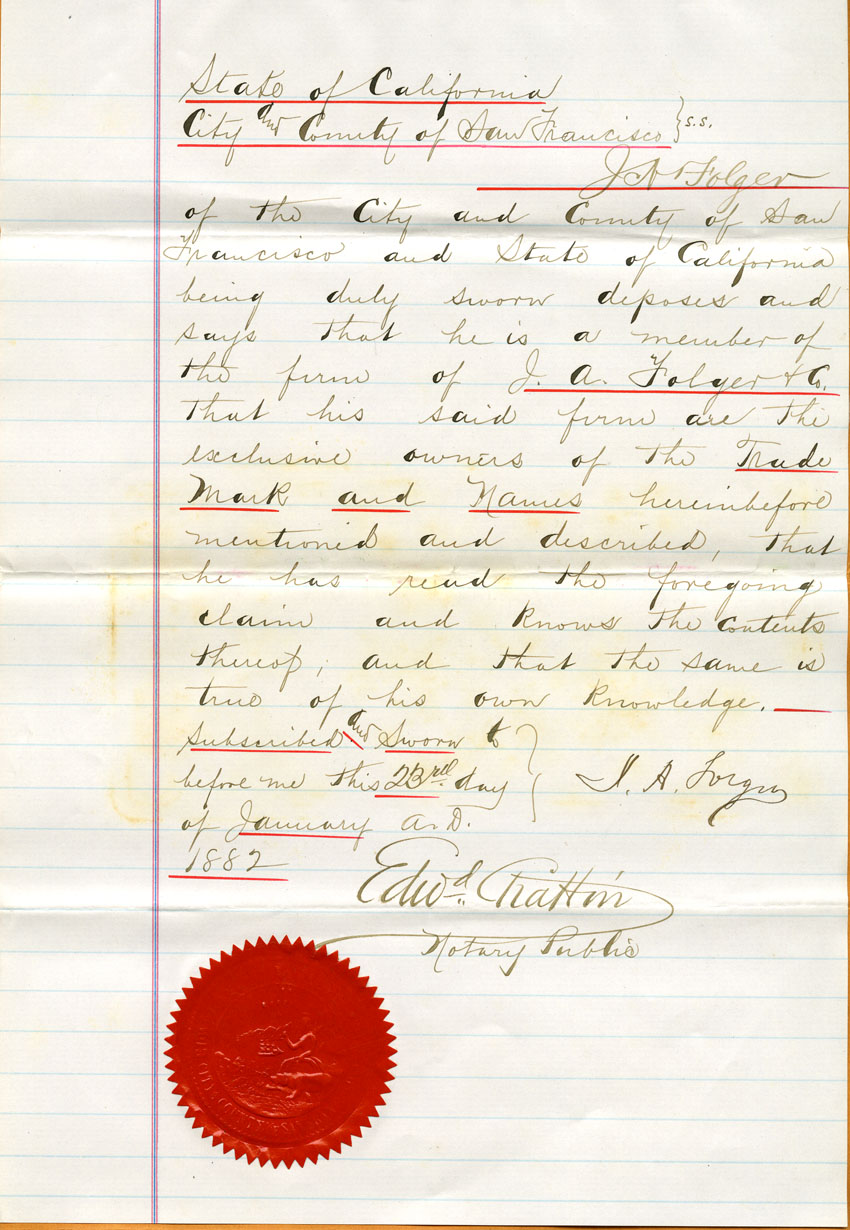 State of California
City and County of San Francisco } s.s.
J A Folger
of the City and County of San
Francisco and State of California
being duly sworn deposes and
says that he is a member of
the firm of J. A. Folger & Co.
that his said firm are the
exclusive owners of the Trade
Mark and Names hereinbefore
mentioned and described, that
he has read the foregoing
claim and knows the contents
thereof, and that the same is
true of his own knowledge.
Subscribed and Sworn to
before me this 23rd day } J. A. Folger
of January A.D.
1882
Edwd Chattin
Notary Public